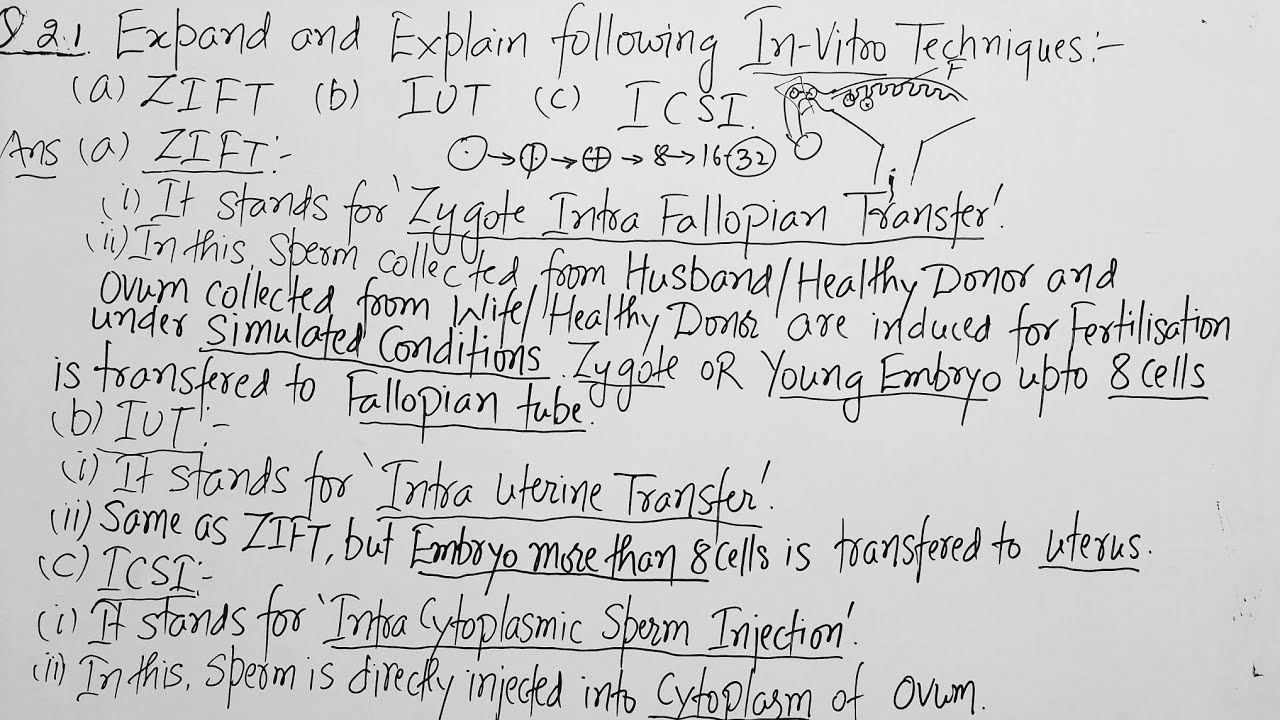 Q 2.1. Expand and Explain following In-Vitro Techniques:-
(a) ZIFT (b) IUT (c) ICSI.
F
Ans (a) ZIFT:-
→ → → 8 → 16 → 32
(i) It stands for 'Zygote Intra Fallopian Transfer'.
(ii) In this, Sperm collected from Husband/Healthy Donor and
Ovum collected from Wife/Healthy Donor are induced for Fertilisation
under Simulated Conditions. Zygote OR Young Embryo upto 8 cells
is transfered to Fallopian tube.
(b) IUT:-
(i) It stands for 'Intra Uterine Transfer'.
(ii) Same as ZIFT, but Embryo more than 8 cells is transfered to uterus.
(c) ICSI:-
(i) It stands for 'Intra Cytoplasmic Sperm Injection'.
(ii) In this, Sperm is directly injected into Cytoplasm of Ovum.